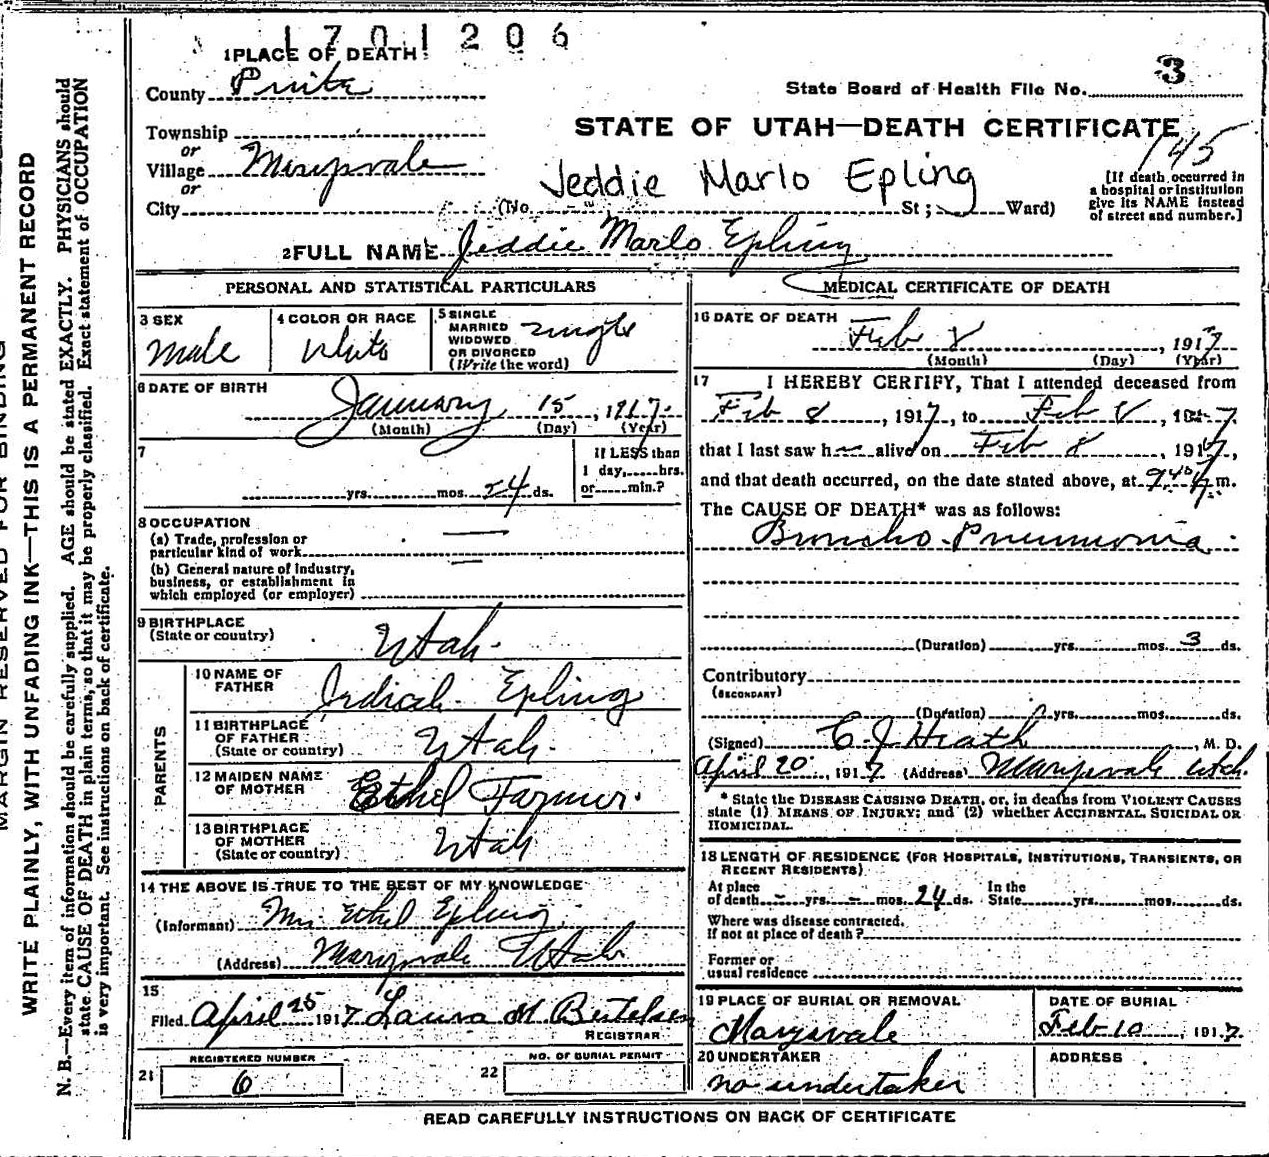 1701206
1 PLACE OF DEATH
County Piute
State Board of Health File No. 3
STATE OF UTAH—DEATH CERTIFICATE
145
Township
or
Village Marysvale
or
City (No. St; Ward)
Jeddie Marlo Epling
[If death occurred in
a hospital or institution
give its NAME instead
of street and number.]
2 FULL NAME Jeddie Marlo Epling
PERSONAL AND STATISTICAL PARTICULARS
3 SEX
Male
4 COLOR OR RACE
White
5 SINGLE
MARRIED
WIDOWED
OR DIVORCED
(Write the word)
Single
6 DATE OF BIRTH
January 15, 1917.
(Month) (Day) (Year)
7
yrs. mos. 24 ds.
If LESS than
1 day, hrs.
or min.?
8 OCCUPATION
(a) Trade, profession or
particular kind of work
(b) General nature of Industry,
business, or establishment in
which employed (or employer)
9 BIRTHPLACE
(State or country)
Utah.
PARENTS
10 NAME OF
FATHER
Epling
11 BIRTHPLACE
OF FATHER
(State or country)
Utah.
12 MAIDEN NAME
OF MOTHER
Ethel Farmer.
13 BIRTHPLACE
OF MOTHER
(State or country)
Utah
14 THE ABOVE IS TRUE TO THE BEST OF MY KNOWLEDGE
(Informant) Mrs Ethel Epling
(Address) Marysvale Utah
15
Filed April 25 1917 Laura M Bertelsen
REGISTRAR
REGISTERED NUMBER
21 6
NO. OF BURIAL PERMIT
22
MEDICAL CERTIFICATE OF DEATH
16 DATE OF DEATH
Feb 8, 1917
(Month) (Day) (Year)
17 I HEREBY CERTIFY, That I attended deceased from
Feb 8, 1917, to Feb 8, 1917
that I last saw h alive on Feb 8, 1917,
and that death occurred, on the date stated above, at 9 40 m.
The CAUSE OF DEATH* was as follows:
Broncho-Pneumonia
(Duration) yrs. mos. 3 ds.
Contributory
(SECONDARY)
(Duration) yrs. mos. ds.
(Signed) C J Heath, M. D.
April 20, 1917 (Address) Marysvale Utah.
* State the DISEASE CAUSING DEATH, or, in deaths from VIOLENT CAUSES
state (1) MEANS OF INJURY; and (2) whether ACCIDENTAL, SUICIDAL OR
HOMICIDAL.
18 LENGTH OF RESIDENCE (FOR HOSPITALS, INSTITUTIONS, TRANSIENTS, OR
RECENT RESIDENTS)
At place
of death - yrs. - mos. 24 ds.
In the
State yrs. mos. ds.
Where was disease contracted.
If not at place of death?
Former or
usual residence
19 PLACE OF BURIAL OR REMOVAL
Marysvale
DATE OF BURIAL
Feb 10, 1917.
20 UNDERTAKER
no undertaker
ADDRESS
READ CAREFULLY INSTRUCTIONS ON BACK OF CERTIFICATE
MARGIN RESERVED FOR BINDING
WRITE PLAINLY, WITH UNFADING INK—THIS IS A PERMANENT RECORD
N. B.—Every item of information should be carefully supplied. AGE should be stated EXACTLY. PHYSICIANS should
state CAUSE OF DEATH in plain terms, so that it may be properly classified. Exact statement of OCCUPATION
is very important. See instructions on back of certificate.